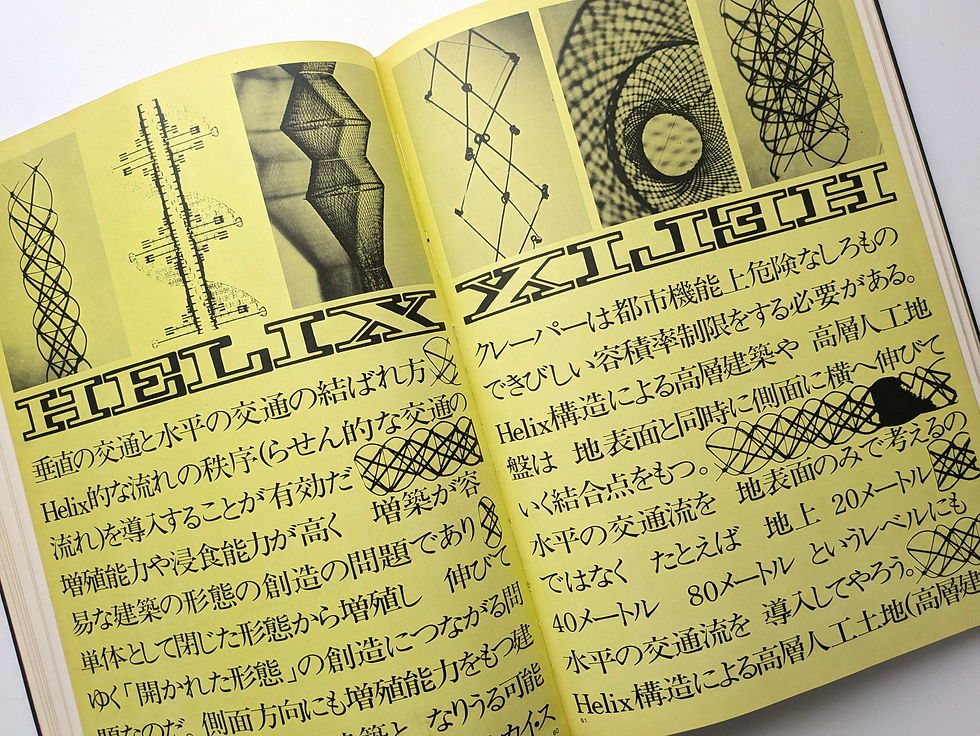 HELIX
垂直の交通と水平の交通の結ばれ方
Helix的な流れの秩序(らせん的な交通の
流れ)を導入することが有効だ
増殖能力や浸食能力が高く　増築が容
易な建築の形態の創造の問題であり
単体として閉じた形態から増殖し　伸びて
ゆく「開かれた形態」の創造につながる問
題なのだ。側面方向にも増殖能力をもつ建
築と　なりうる可能
カイ・ス
60
HELIX
クレーパーは都市機能上危険なしろもの
できびしい容積率制限をする必要がある。
Helix構造による高層建築や　高層人工地
盤は　地表面と同時に側面に横へ伸びて
いく結合点をもつ。
水平の交通流を　地表面のみで考えるの
ではなく　たとえば　地上　20メートル
40メートル　80メートル　というレベルにも
水平の交通流を　導入してやろう。
Helix構造による高層人工土地(高層建
61